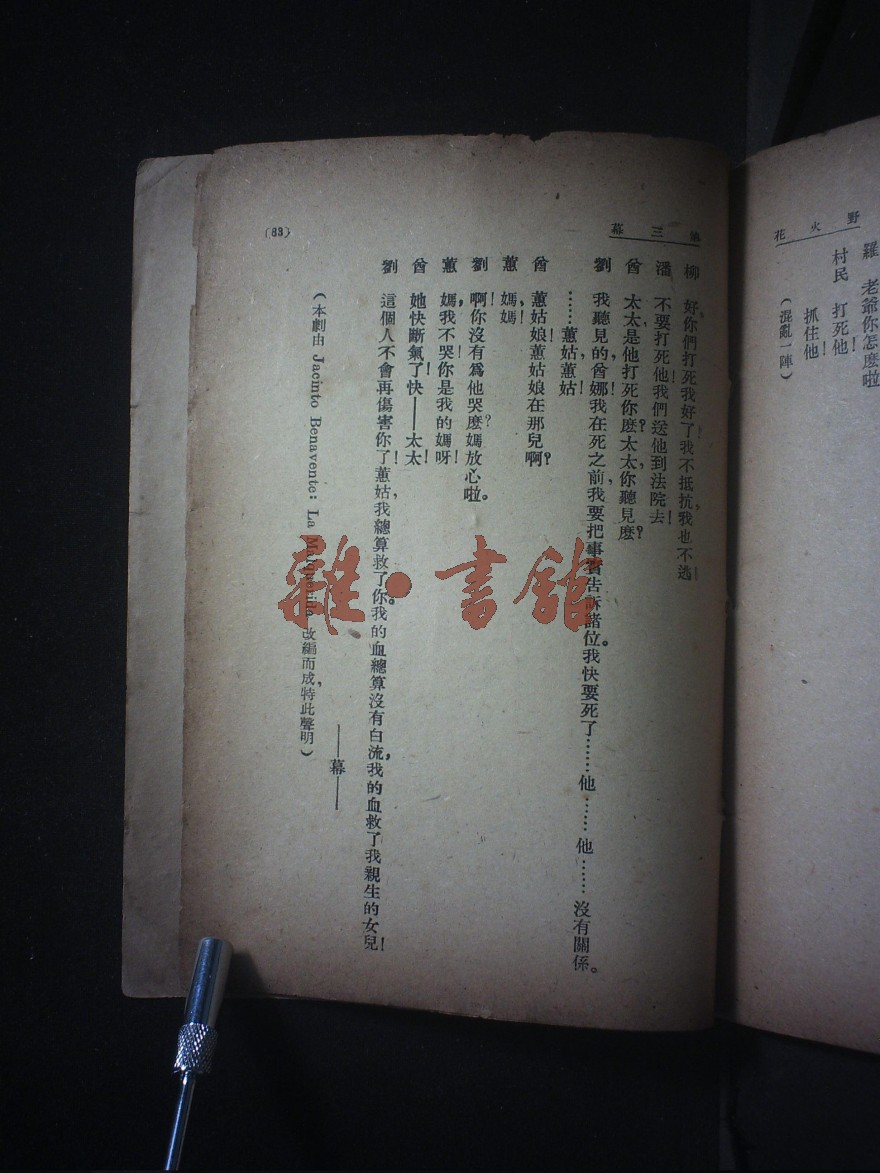 野火花
羅　老爺你怎麽啦
村民　打死他！
抓住他！
（混亂一陣）
第三幕
柳　好，你們打死我好了！我不抵抗，我也不逃！
潘　不要打死他！我們送他到法院去！
曾　太太，是他打死你麽？太太，你聽見麽？
劉　我聽見的，曾娜！我在死之前，我要把事實告訴諸位。我快要死了……他……他……沒有關係。
……蕙姑！蕙姑！
曾　蕙姑娘！蕙姑娘在那兒啊？
蕙　媽，媽！
劉　啊！你沒有爲他哭麽？媽放心啦。
蕙　媽，我不哭！你是我的媽呀！
曾　她快斷氣了！快——太太！
劉　這個人不會再傷害你了！蕙姑，我總算救了你。我的血總算沒有白流，我的血救了我親生的女兒！
——幕——
（本劇由 Jacinto Benavente: La Malquerida 改編而成，特此聲明）
(83)
雜·書館